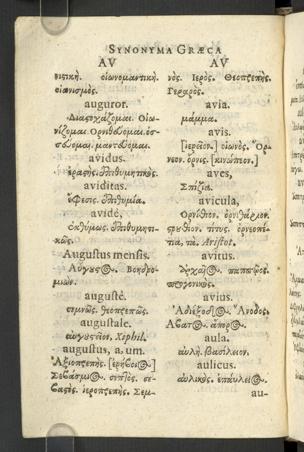 SYNONYMA GRÆCA
AV
νιστική. οἰωνομαντική.
οἰωνισμός.
auguror.
Διαερχάζομαι. Οἰω-
νίζομαι. Ὀρνιθεύομαι.
μαντεύομαι.
avidus.
ἐπιθυμητικός.
aviditas.
ἔφεσις. ἐπιθυμία.
avidè,
ἐπιθυμητι-
κῶς.
Augustus mensis.
Αὔγουστος. Βοηδρο-
μιών.
augustè.
σεμνῶς. θεοπρεπῶς.
augustale.
αὐγουστεῖον. Xiphil.
augustus, a, um.
Ἀξιοπρεπής.
Σεβάσμιος. σεπτός. σε-
βαστός. ἱεροπρεπής. Σεμ-
AV
νός. Ἱερός. Θεοπρεπής.
Γεραρός.
avia.
μάμμα.
avis.
οἰωνός. Ὄρ-
νεον. ὄρνις.
aves,
Σπίζια.
avicula,
Ὀρνίθιον. ὀρνιθάριον.
στρυθίον. τίτυς.
Aristot.
avitus.
Ἀρχαῖος. παππῷος.
προγονικός.
avius.
Ἀδιέξοδος. Ἄνοδος.
Ἄβατος. ἄπορος.
aula.
αὐλή. βασίλειον.
aulicus.
αὐλικός. ἐπαύλειος.
au-